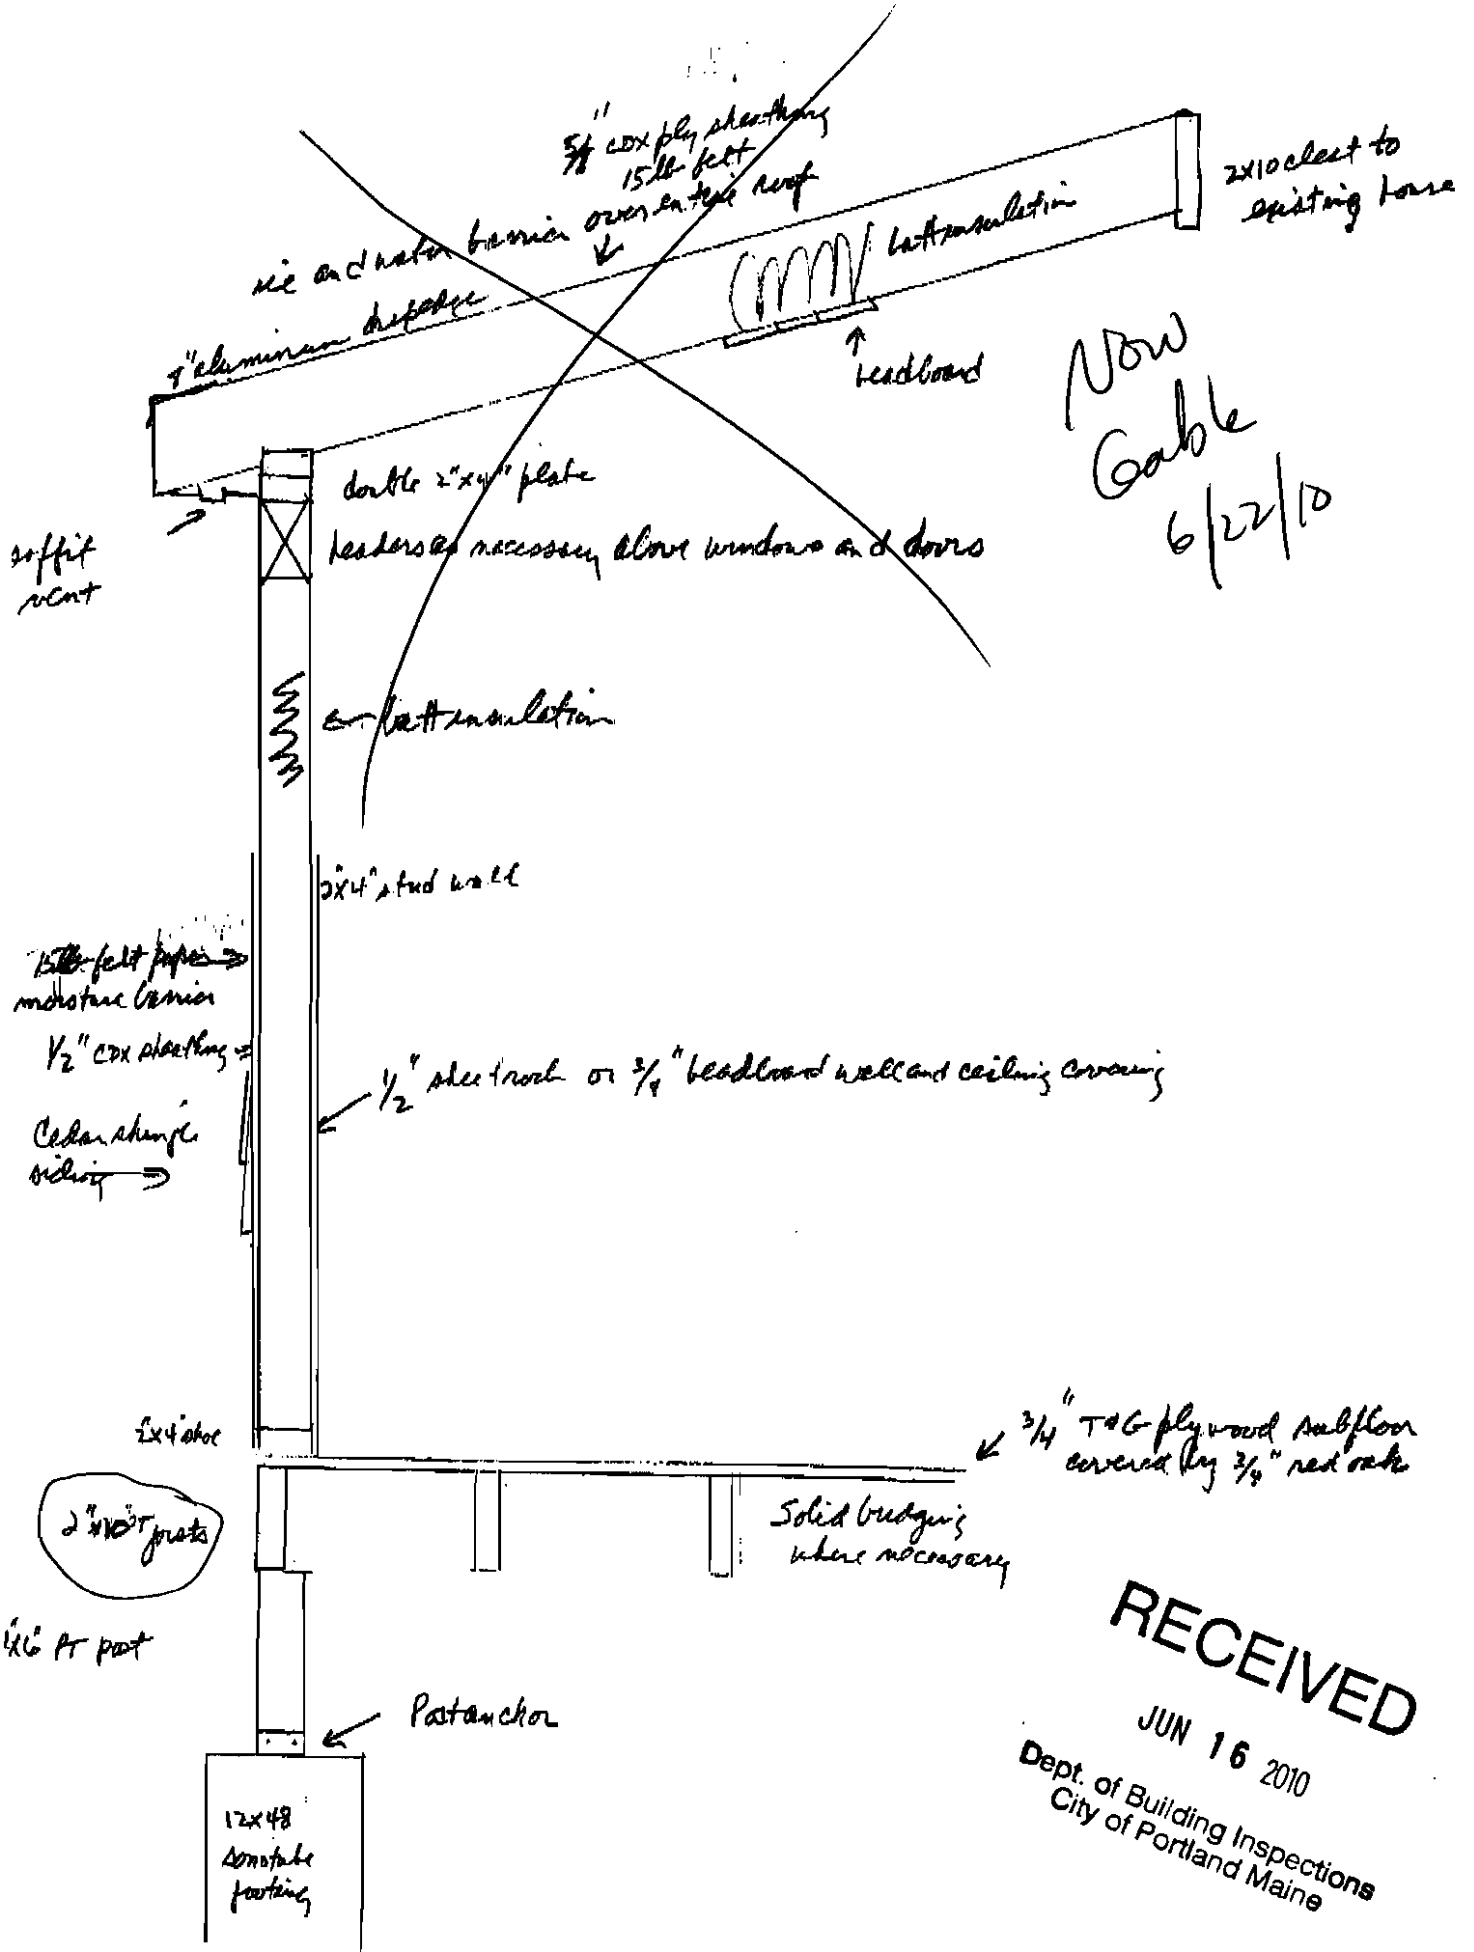 5/8" CDX ply sheathing
15 lb felt
ice and water barrier over entire roof
aluminum dripedge
batt insulation
2x10 cleat to
existing house
beadboard
Now
Gable
6/22/10
double 2"x4" plate
headers as necessary above windows and doors
soffit
vent
batt insulation
2"x4" stud wall
15 lb felt paper
moisture barrier
1/2" CDX sheathing
1/2" sheetrock or 3/4" beadboard wall and ceiling covering
Cedar shingle
siding
2"x4" shoe
3/4" T&G plywood subfloor
covered by 3/4" red oak
joists
Solid bridging
where necessary
PT post
Post anchor
12x48
sonotube
footing
RECEIVED
JUN 16 2010
Dept. of Building Inspections
City of Portland Maine